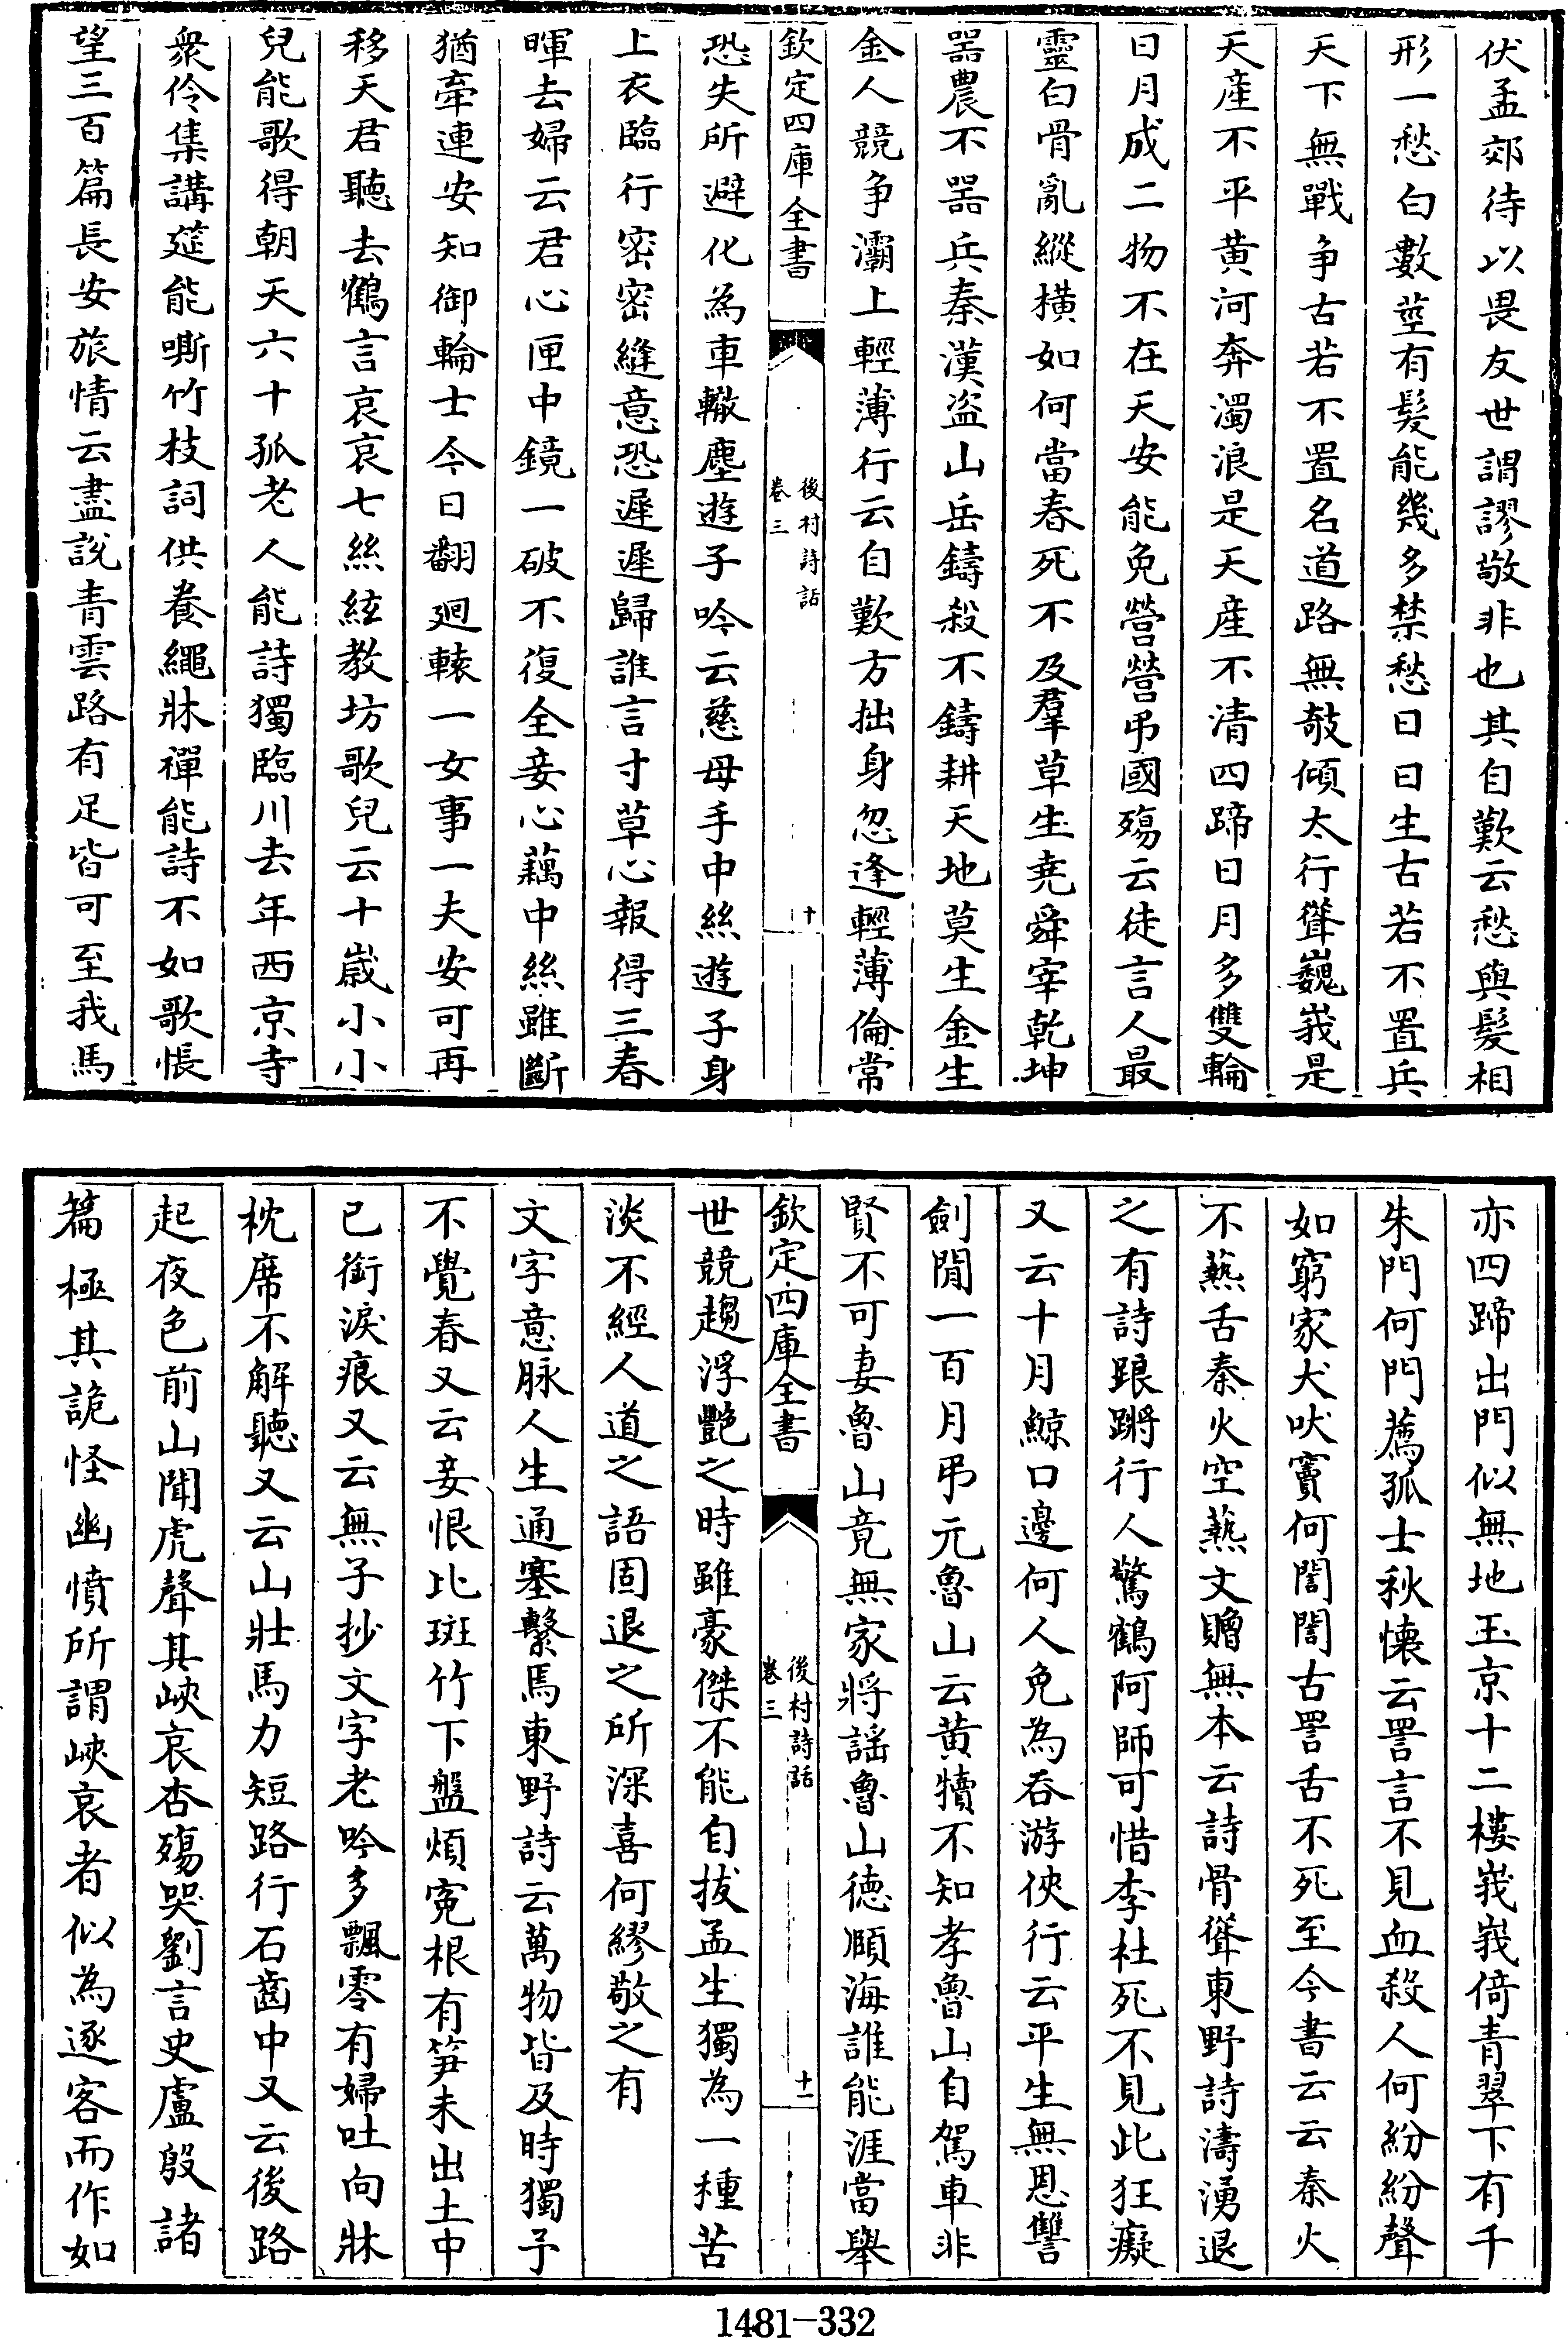 伏孟郊待以畏友世謂謬敬非也其自歎云愁與髮相
形一愁白數莖有髮能幾多禁愁日日生古若不置兵
天下無戰争古若不置名道路無敧傾太行聳巍峩是
天産不平黄河奔濁浪是天産不清四蹄日月多雙輪
日月成二物不在天安能免營營弔國殤云徒言人最
靈白骨亂縱橫如何當春死不及羣草生堯舜宰乾坤
噐農不噐兵秦漢盗山岳鑄殺不鑄耕天地莫生金生
金人競争灞上輕薄行云自歎方拙身忽逢輕薄倫常
欽定四庫全書
後村詩話
卷三
十
恐失所避化為車轍塵遊子吟云慈母手中絲遊子身
上衣臨行密密縫意恐遲遲歸誰言寸草心報得三春
暉去婦云君心匣中鏡一破不復全妾心藕中絲雖斷
猶牽連安知御輪士今日翻廻轅一女事一夫安可再
移天君聽去鶴言哀哀七絲絃教坊歌兒云十歲小小
兒能歌得朝天六十孤老人能詩獨臨川去年西京寺
衆伶集講筵能嘶竹枝詞供養繩牀禪能詩不如歌悵
望三百篇長安旅情云盡說青雲路有足皆可至我馬
亦四蹄出門似無地玉京十二樓峩峩倚青翠下有千
朱門何門薦孤士秋懷云詈言不見血殺人何紛紛聲
如窮家犬吠竇何誾誾古詈舌不死至今書云云秦火
不爇舌秦火空爇文贈無本云詩骨聳東野詩濤湧退
之有詩踉蹡行人驚鶴阿師可惜李杜死不見此狂癡
又云十月鯨口邊何人免為吞游俠行云平生無恩讐
劍閒一百月弔元魯山云黄犢不知孝魯山自駕車非
賢不可妻魯山竟無家將謠魯山德賾海誰能涯當舉
欽定四庫全書
後村詩話
卷三
十一
世競趨浮艷之時雖豪傑不能自拔孟生獨為一種苦
淡不經人道之語固退之所深喜何繆敬之有
文字意脉人生通塞繫焉東野詩云萬物皆及時獨予
不覺春又云妾恨比斑竹下盤煩寃根有笋未出土中
已銜淚痕又云無子抄文字老吟多飄零有婦吐向牀
枕席不解聽又云山壯馬力短路行石齒中又云後路
起夜色前山聞虎聲其峽哀杏殤哭劉言史盧殷諸
篇極其詭怪幽憤所謂峽哀者似為逐客而作如
1481-332